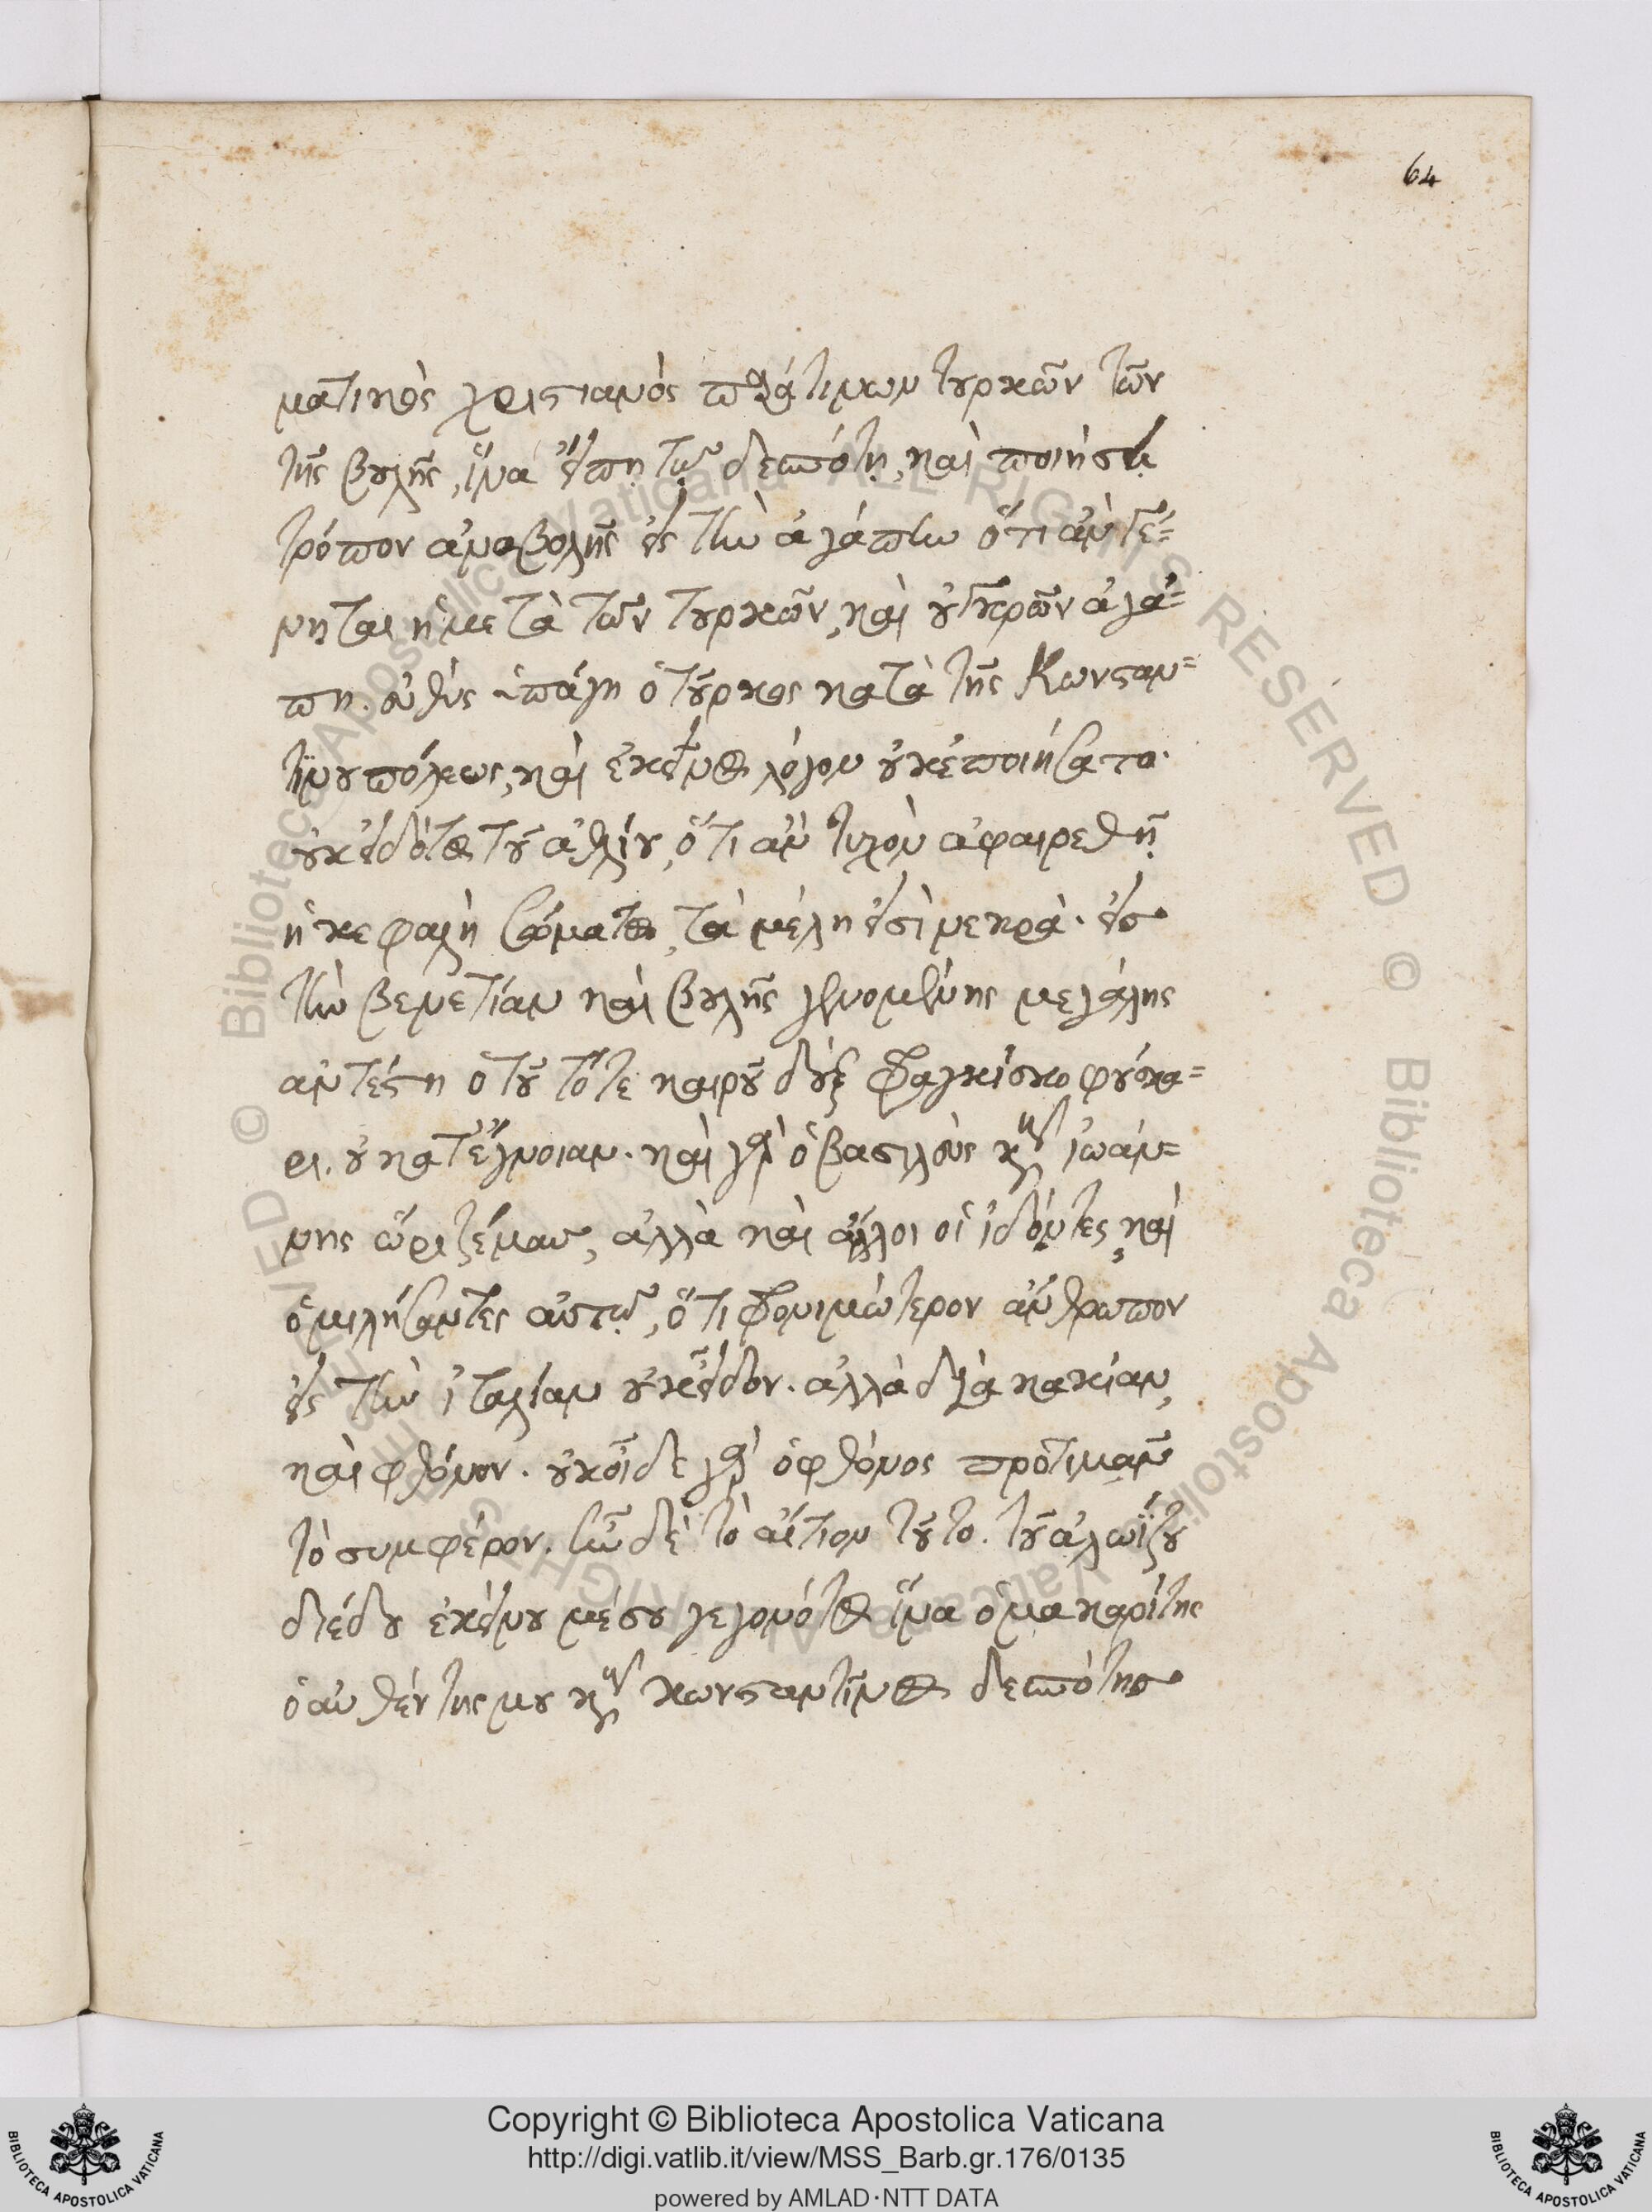 64
ματικὸς χριστιανὸς παρά τινων τουρκῶν τῶν
τῆς βουλῆς, ἵνα εἴπῃ τῷ δεσπότῃ, καὶ ποιήσῃ
τρόπον ἀναβολῆς εἰς τὴν ἀγάπην ὅτι ἂν γέ=
νηται ἡ μετὰ τῶν τουρκῶν, καὶ οὐγκρῶν ἀγά=
πη. εὐθὺς ὑπάγῃ ὁ τοῦρκος κατὰ τῆς Κωνσταν=
τινουπόλεως, καὶ ἐκεῖνος λόγον οὐκ ἐποιήσατο.
οὐκ εἰδότος τοῦ ἀθλίου, ὅτι ἂν τυχὸν ἀφαιρεθῇ
ἡ κεφαλὴ σώματος, τὰ μέλη εἰσὶ νεκρά. εἰς
τὴν βενετίαν καὶ βουλῆς γενομένης μεγάλης
ἀντέστη ὁ τοῦ τότε καιροῦ δοὺξ φραγκίσκο φούσκα=
ρι. οὐ κατ' ἔγνοιαν. καὶ γὰρ ὁ βασιλεὺς κὺρ ἰωάν=
νης ὥριζέ μου, ἀλλὰ καὶ ἄλλοι οἱ ἰδόντες, καὶ
ὁμιλήσαντες αὐτῷ, ὅτι φρονιμώτερον ἄνθρωπον
εἰς τὴν ἰταλίαν οὐκ εἶδον. ἀλλὰ διὰ κακίαν,
καὶ φθόνον. οὐκ οἶδε γὰρ ὁ φθόνος προτιμᾶν
τὸ συμφέρον. ἦν δὲ τὸ αἴτιον τοῦτο. τοῦ ἀλωΐζου
διέδου ἐκείνου μέσου γεγονότος ἵνα ὁ μακαρίτης
ὁ αὐθέντης μου κὺρ κωνσταντῖνος δεσπότης
Copyright © Biblioteca Apostolica Vaticana
http://digi.vatlib.it/view/MSS_Barb.gr.176/0135
powered by AMLAD·NTT DATA